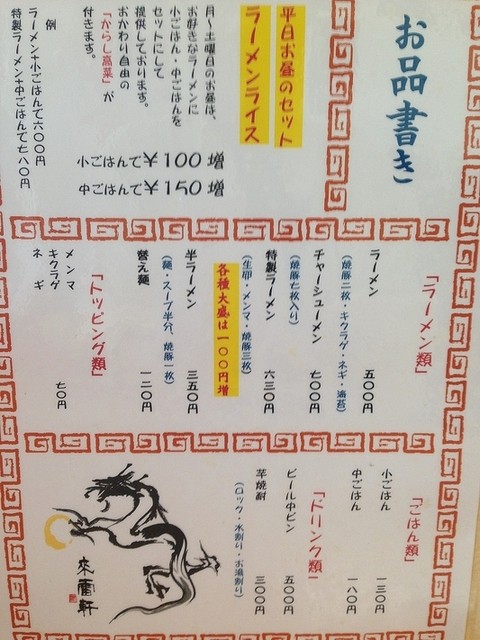 お品書き
平日お昼のセット
ラーメンライス
月～土曜日のお昼は、
お好きなラーメンに
小ごはん・中ごはんを
セットにして
提供しております。
おかわり自由の
「からし高菜」が
付きます。
小ごはんで￥100増
中ごはんで￥150増
例
ラーメン+小ごはんで六〇〇円
特製ラーメン+中ごはんで七八〇円
「ラーメン類」
ラーメン 五〇〇円
(焼豚二枚・キクラゲ・ネギ・海苔)
チャーシューメン 七〇〇円
(焼豚七枚入り)
特製ラーメン 六三〇円
(生卵・メンマ・焼豚三枚)
各種大盛は一〇〇円増
半ラーメン 三五〇円
(麺・スープ半分、焼豚一枚)
替え麺 一二〇円
「トッピング類」
メンマ
キクラゲ
ネギ
七〇円
「ごはん類」
小ごはん 一三〇円
中ごはん 一八〇円
「ドリンク類」
ビール中ビン 五〇〇円
芋焼酎 三〇〇円
(ロック・水割り・お湯割り)
來雷軒